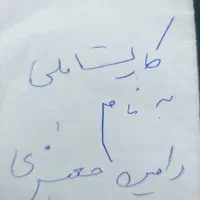 کارت ملی
به نام
رامین جعفری